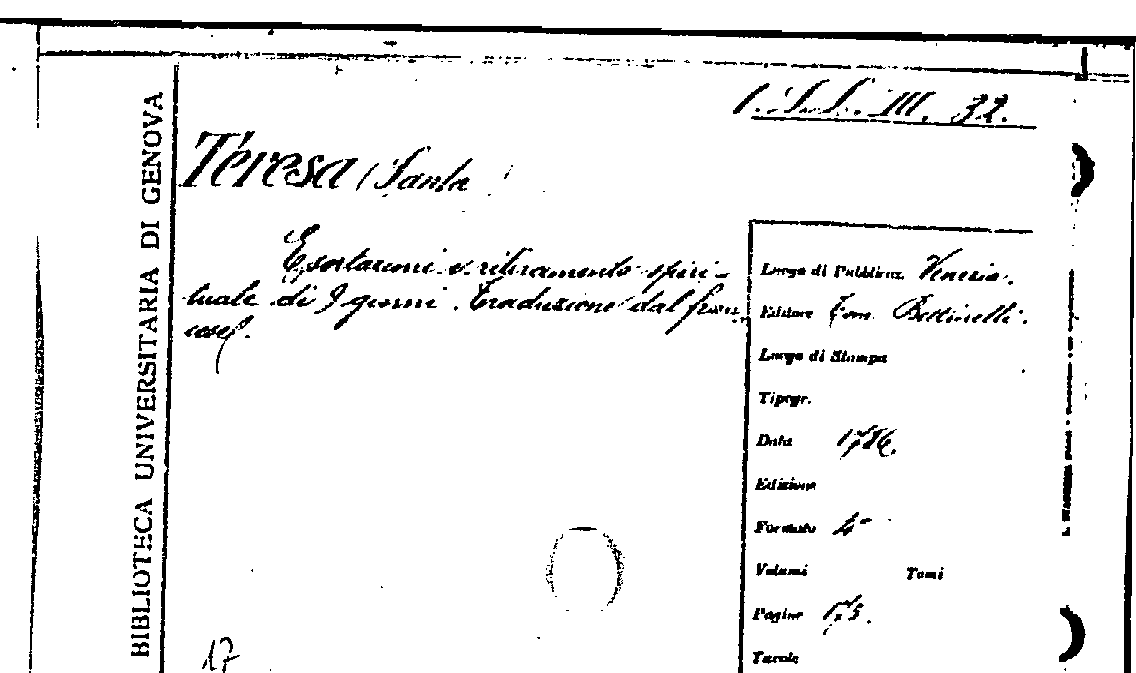 BIBLIOTECA UNIVERSITARIA DI GENOVA
1. S.S. III. 32.
Teresa (Santa
Esortazioni e ritiramento spiri-
tuale di 9 giorni. Traduzione dal fran-
cese.
Luogo di Pubblicaz. Venezia.
Editore Tom. Bettinelli.
Luogo di Stampa
Tipogr.
Data 1786.
Edizione
Formato 4º
Volumi Tomi
Pagine 175.
Tavole
17